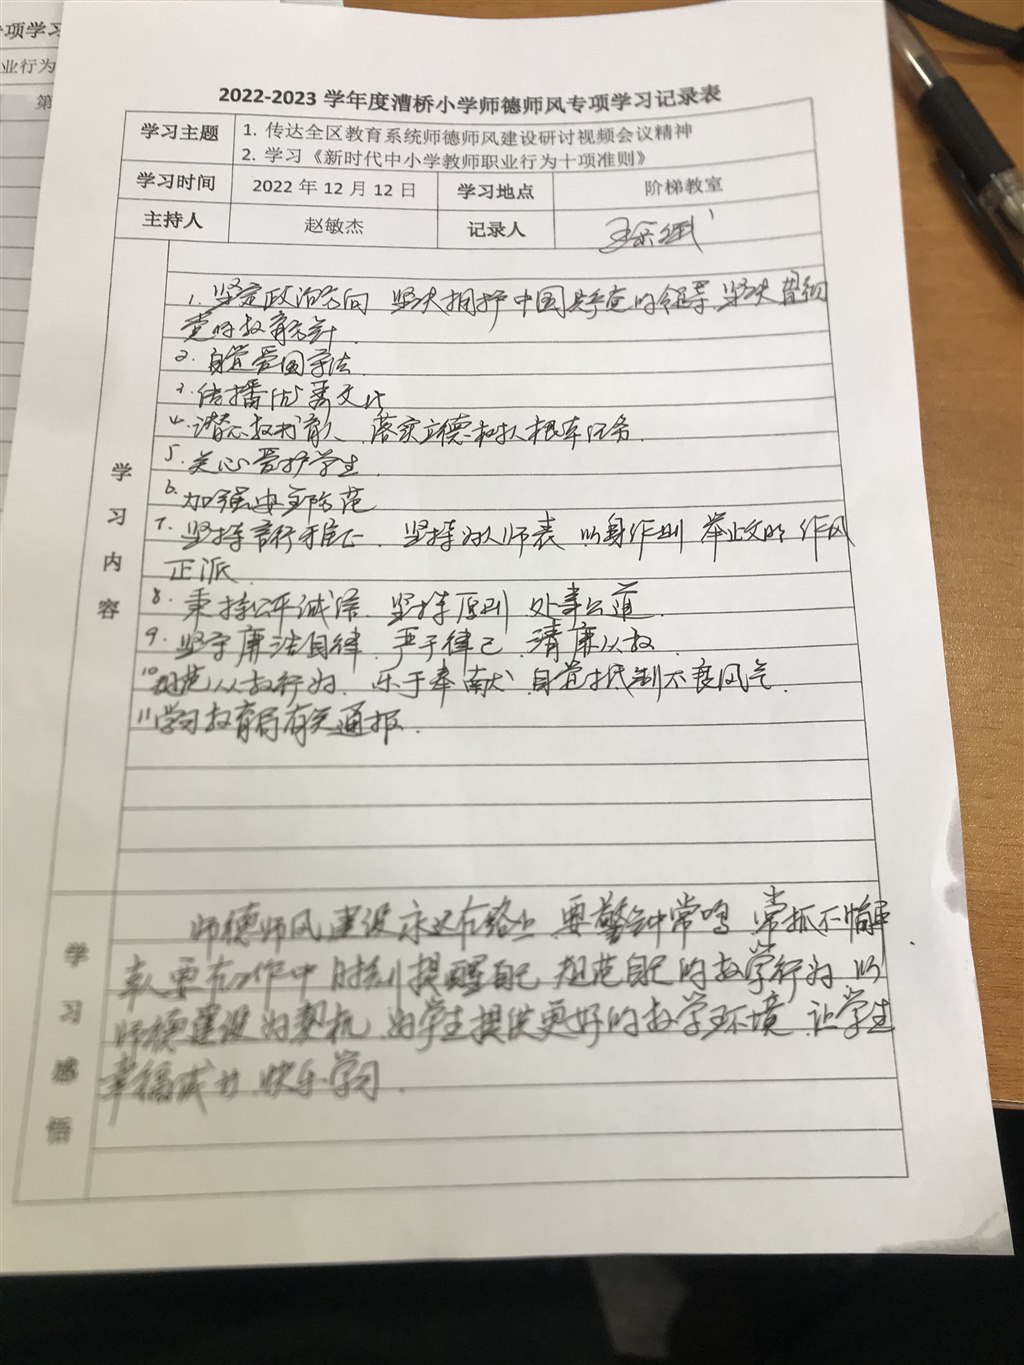 专项学习
业行为
第
2022-2023 学年度漕桥小学师德师风专项学习记录表
学习主题
1. 传达全区教育系统师德师风建设研讨视频会议精神
2. 学习《新时代中小学教师职业行为十项准则》
学习时间 2022 年 12 月 12 日 学习地点 阶梯教室
主持人 赵敏杰 记录人
学习内容
1. 坚定政治方向 坚决拥护中国共产党的领导 坚决贯彻
党的教育方针.
2. 自觉爱国守法
3. 传播优秀文化
4. 潜心教书育人 落实立德树人根本任务.
5. 关心爱护学生.
6. 加强安全防范
7. 坚持言行雅正 坚持为人师表 以身作则 举止文明 作风
正派.
8. 秉持公平诚信 坚持原则 处事公道
9. 坚守廉洁自律 严于律己 清廉从教
10. 规范从教行为. 乐于奉献 自觉抵制不良风气.
11. 学习教育局有关通报.
学习感悟
师德师风建设永远在路上 要警钟常鸣 常抓不懈
本人要在工作中时刻提醒自己 规范自己的教学行为 以
师德建设为契机. 为学生提供更好的教学环境 让学生
幸福成长. 快乐学习.